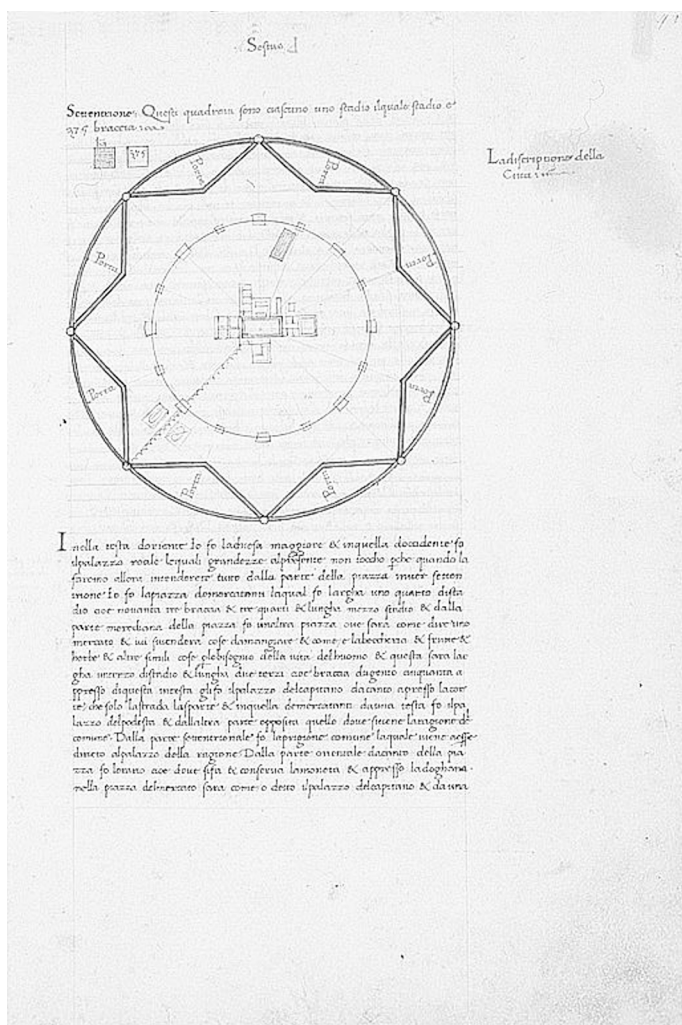 Sestus
Settentrione. Questi quadretti sono ciascuno uno stadio ilquale stadio e
375 braccia
375
Ladiscriptione della
Citta
Porta
Porta
Porta
Porta
Porta
Porta
Porta
Porta
Inella testa doriente Io fo lachiesa maggiore & inquella doccidente fo
ilpalazzo reale lequali grandezze alpresente non toccho pche quando la
faremo allora intenderete tutto dalla parte della piazza inver setten
trione Io fo lapiazza demercatanti laqual fo largha uno quarto dista
dio cioe novanta tre braccia & tre quarti & lungha mezzo stadio & dalla
parte meridiana della piazza fo unaltra piazza che sara come dire uno
mercato & ivi sivendera cose damangiare & come e labeccheria & frutte &
herbe & altre simili cose chebisogno della vita delhuomo & questa fara lar
gha interzo distadio & lungha due terzi cioe braccia dugento cinquanta a
ppresso diquesta intesta glifo ilpalazzo delcapitano dacanto apresso lacor
te che solo lastrada lasparte & inquella demercatanti dauna testa fo ilpa
lazzo delpodesta & dallaltra parte opposita quello dove sitiene laragione del
comune. Dalla parte settentrionale fo laprigione comune laquale viene aesse
dirieto alpalazzo della ragione. Dalla parte orientale dacanto della pia
zza fo lerario cioe dove sifa & conserva lamoneta & appresso ladoghana.
nella piazza delmercato sara come o detto ilpalazzo delcapitano & dauna